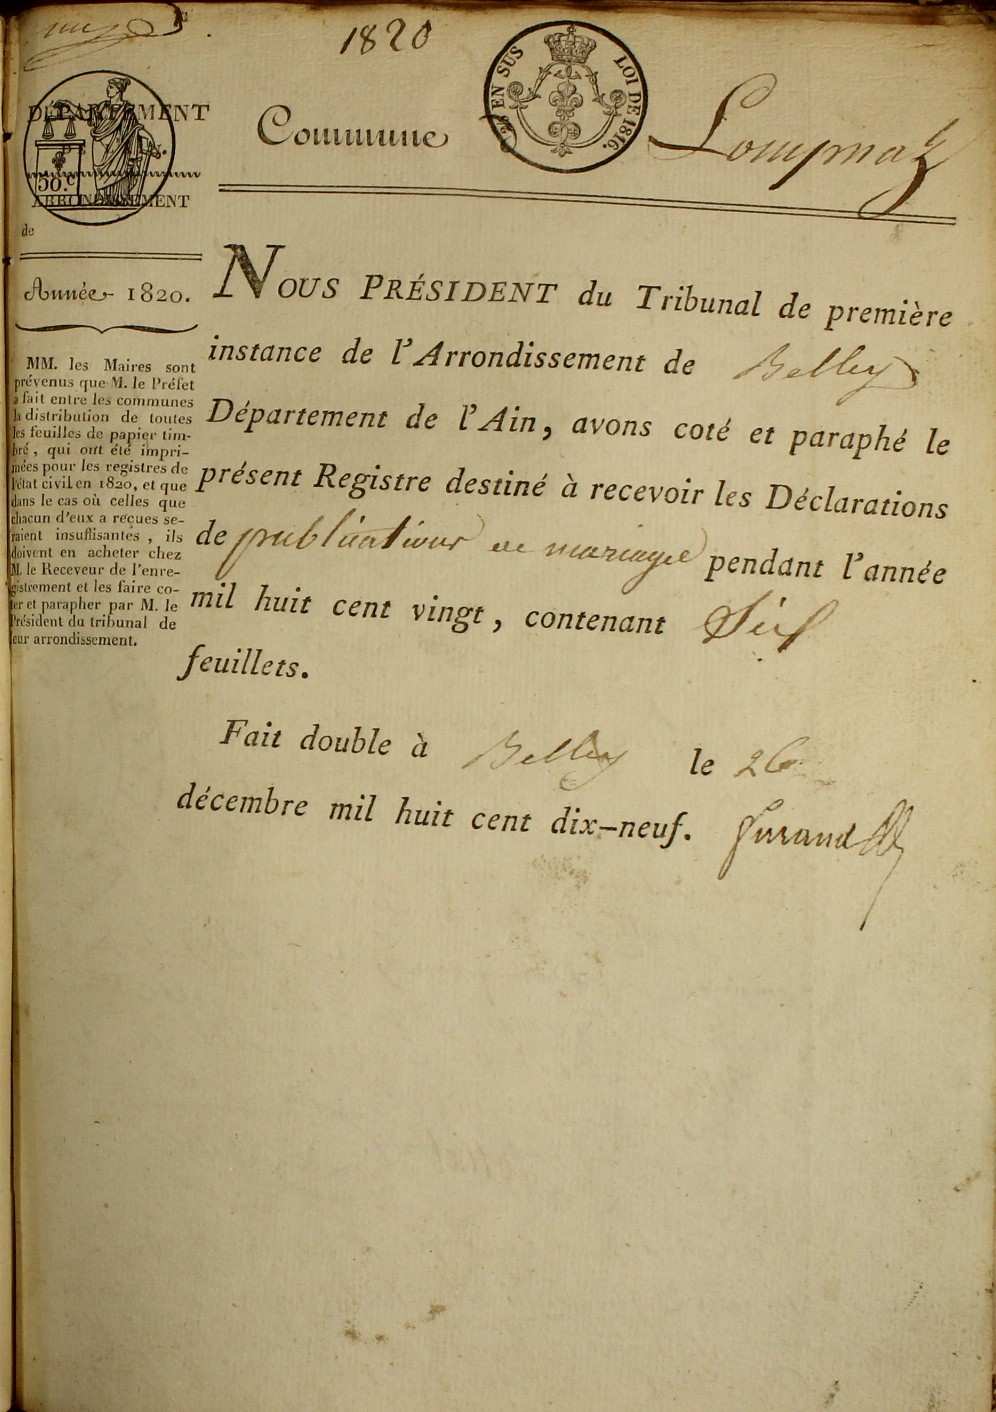 1820
EN SUS LOI DE 1816.
DÉPARTEMENT
50.c
ARRONDISSEMENT
de
Commune Lompnaz
Année 1820.
MM. les Maires sont
prévenus que M. le Préfet
a fait entre les communes
la distribution de toutes
les feuilles de papier tim-
bré, qui ont été impri-
mées pour les registres de
l'état civil en 1820, et que
dans le cas où celles que
chacun d'eux a reçues se-
raient insuffisantes, ils
doivent en acheter chez
M. le Receveur de l'enre-
gistrement et les faire co-
ter et parapher par M. le
Président du tribunal de
leur arrondissement.
NOUS PRÉSIDENT du Tribunal de première
instance de l'Arrondissement de Belley
Département de l'Ain, avons coté et paraphé le
présent Registre destiné à recevoir les Déclarations
de publications de mariage pendant l'année
mil huit cent vingt, contenant Six
feuillets.
Fait double à Belley le 26
décembre mil huit cent dix-neuf.